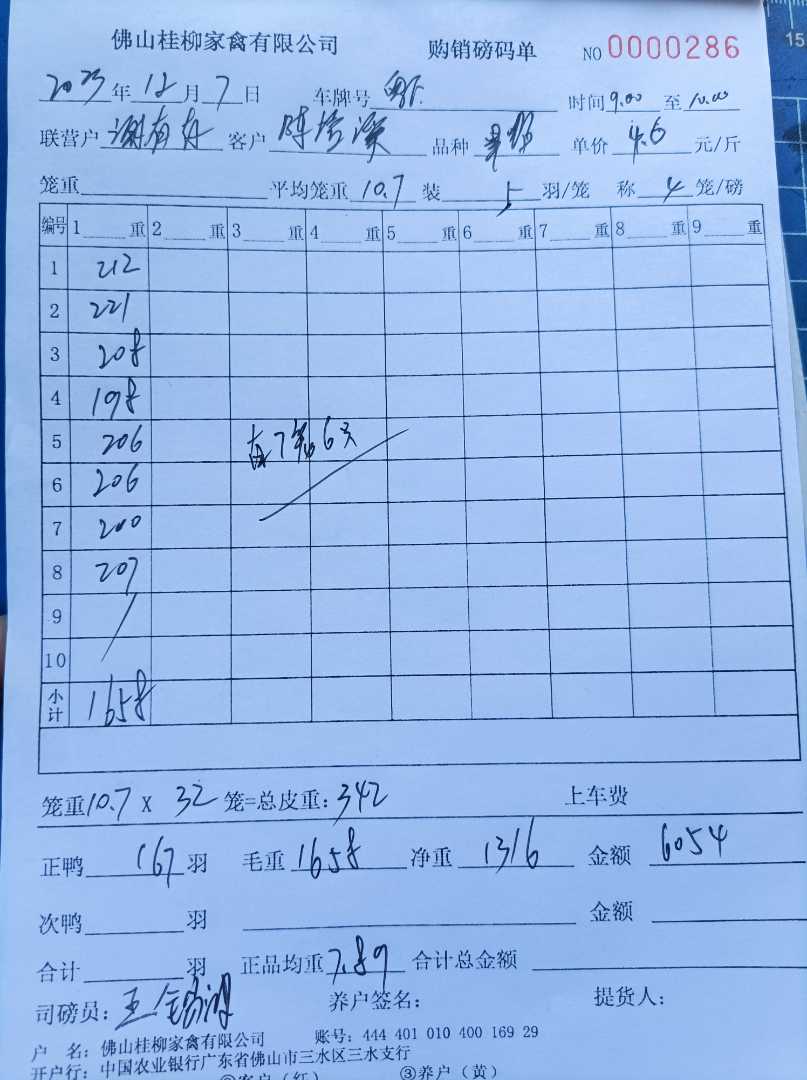 佛山桂柳家禽有限公司 购销磅码单 NO 0000286
2023年12月7日 车牌号 时间9.00至10.00
联营户 谢有东 客户 陈 品种 单价 4.6 元/斤
笼重 平均笼重 10.7 装 5 羽/笼 称 4 笼/磅
编号 1 重 2 重 3 重 4 重 5 重 6 重 7 重 8 重 9 重
1 212
2 221
3 208
4 198
5 206 有7笼 6只
6 206
7 200
8 207
9
10
小计 1658
笼重10.7 X 32 笼=总皮重:342 上车费
正鸭 167 羽 毛重 1658 净重 1316 金额 6054
次鸭 羽 金额
合计 羽 正品均重 7.89 合计总金额
司磅员: 王 养户签名: 提货人:
户 名: 佛山桂柳家禽有限公司 账号: 444 401 010 400 169 29
开户行: 中国农业银行广东省佛山市三水区三水支行
②客户(红) ③养户(黄)